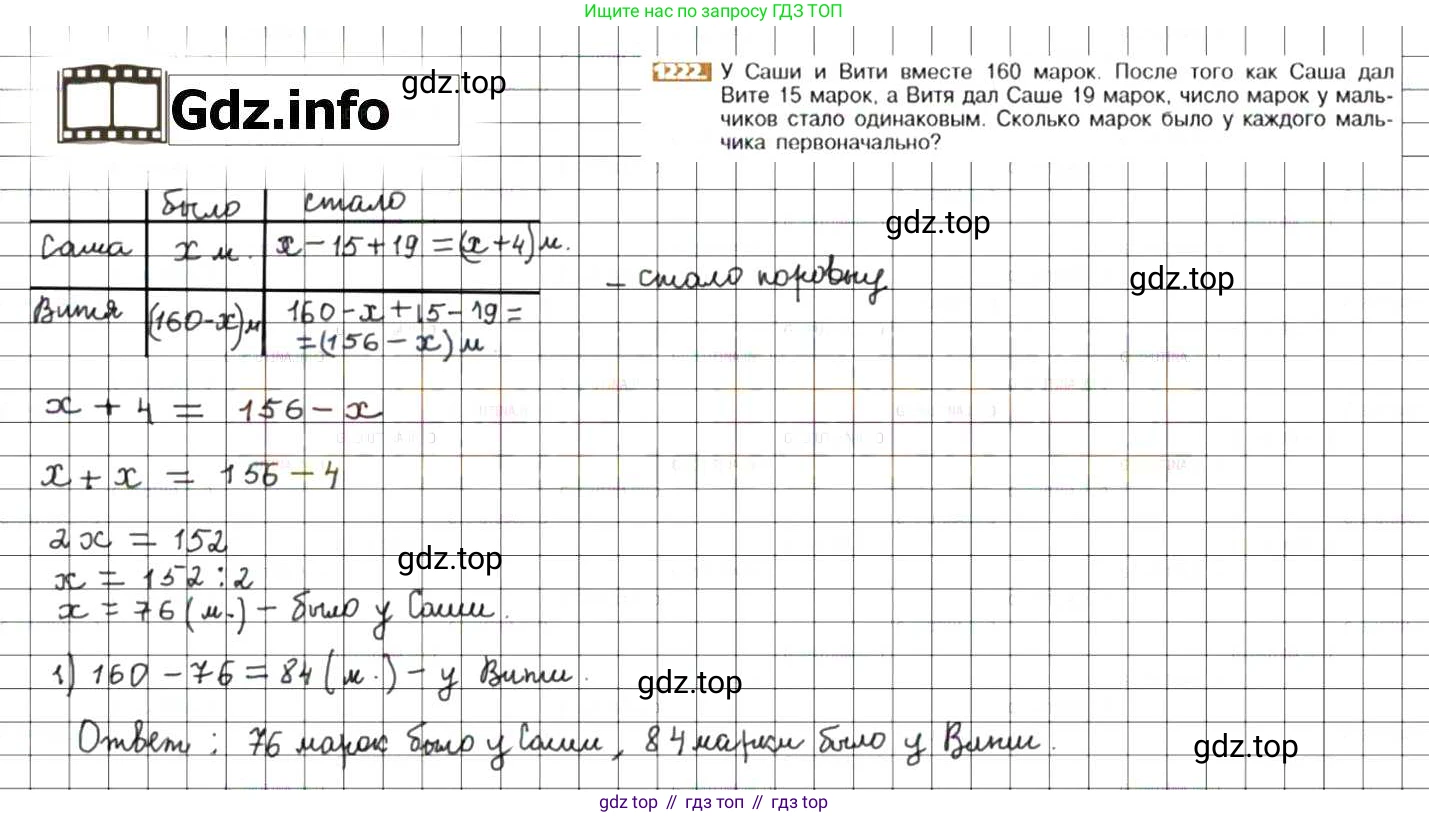 Ищите нас по запросу ГДЗ ТОП
gdz.top
Gdz.info
1222. У Саши и Вити вместе 160 марок. После того как Саша дал
Вите 15 марок, а Витя дал Саше 19 марок, число марок у маль-
чиков стало одинаковым. Сколько марок было у каждого маль-
чика первоначально?
было стало
gdz.top
Саша x м. x - 15 + 19 = (x + 4) м.
- стало поровну
gdz.top
Витя (160 - x) м 160 - x + 15 - 19 =
= (156 - x) м
x + 4 = 156 - x
x + x = 156 - 4
2x = 152
gdz.top
x = 152 : 2
x = 76 (м.) - было у Саши.
1) 160 - 76 = 84 (м.) - у Вити.
gdz.top
Ответ: 76 марок было у Саши, 84 марки было у Вити.
gdz.top
gdz top // гдз топ // gdz top